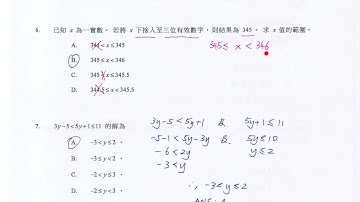 6. 已知 x 為一實數。若將 x 下捨入至三位有效數字，則結果為 345。求 x 值的範圍。
345 ≤ x < 346
A. 344 < x ≤ 345
B. 345 ≤ x < 346
C. 345 ≤ x ≤ 345.5
D. 344.5 ≤ x < 345.5
7. 3y−5<5y+1≤11 的解為
3y−5 < 5y+1 & 5y+1 ≤ 11
A. −3 < y ≤ 2。
−5−1 < 5y−3y & 5y ≤ 10
B. −3 < y < 2。
−6 < 2y y ≤ 2
C. −2 < y ≤ 3。
−3 < y
D. −2 ≤ y < 3。
∴ −3 < y ≤ 2